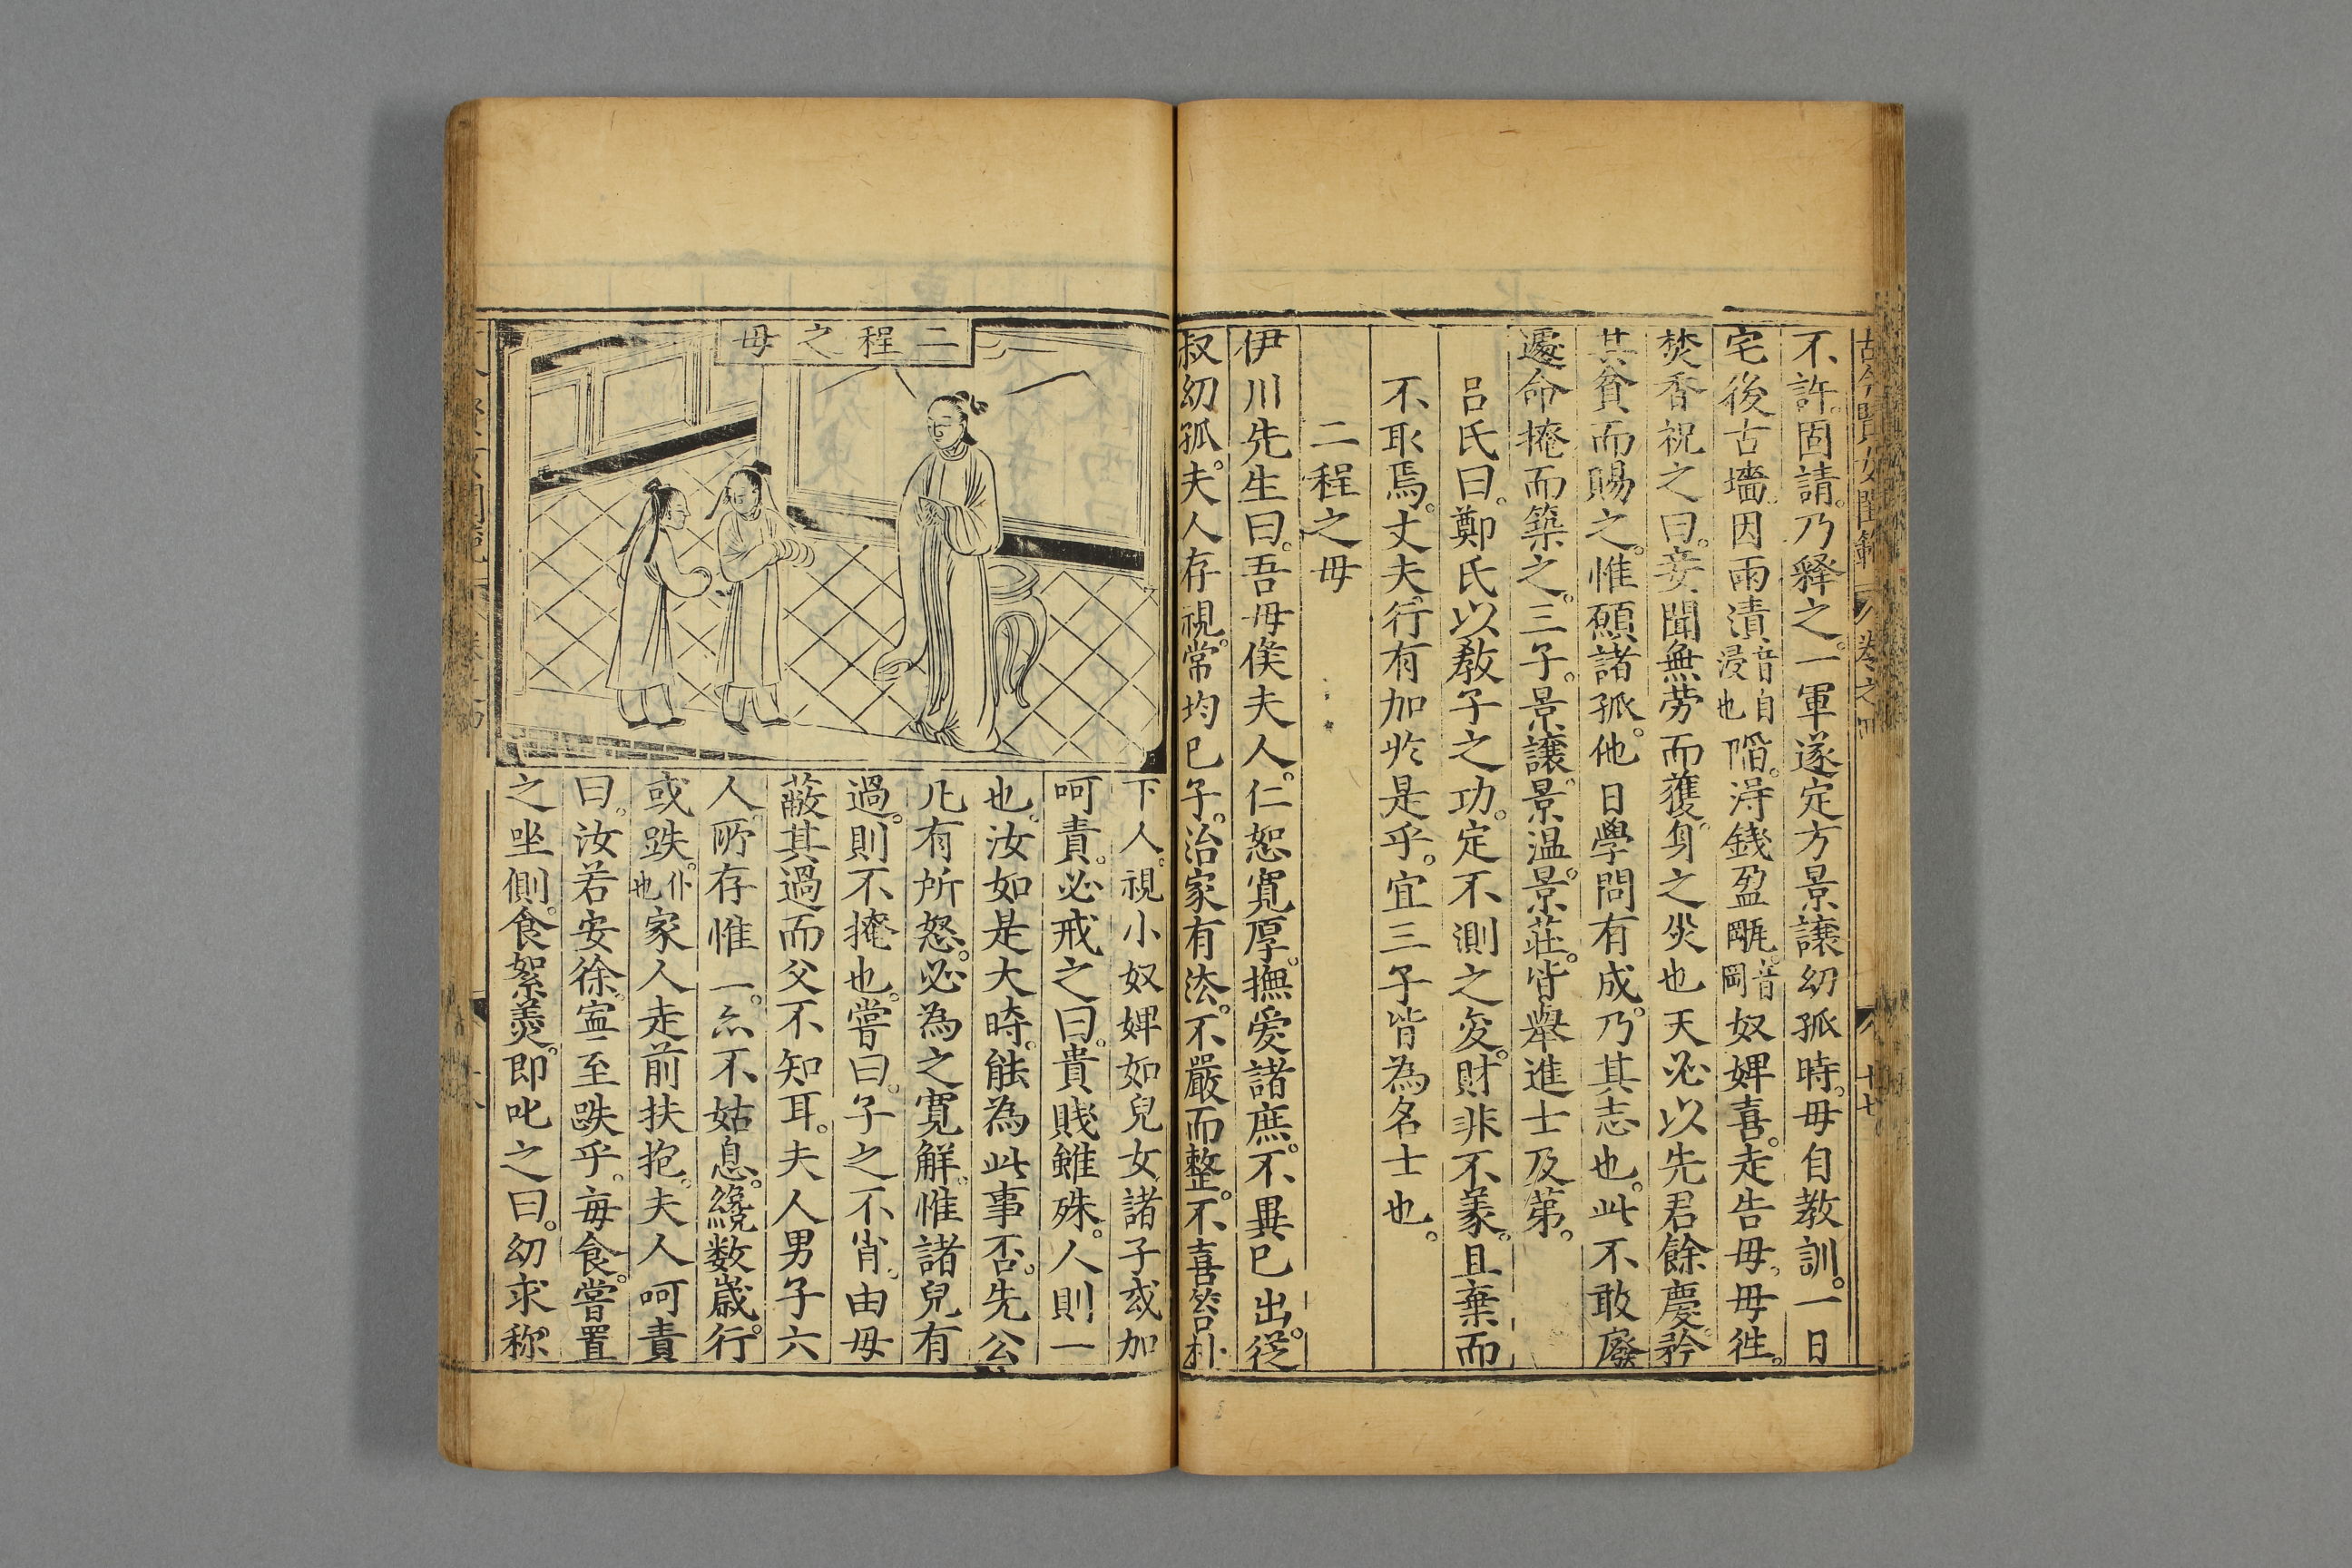 古今賢女閨範 卷之四 十七
不許。固請。乃釋之。一軍遂定方景讓幼孤時。母自教訓。一日
宅後古墻。因雨漬音自浸也陷。淂錢盈甌。音岡奴婢喜。走告母。母徃。
焚香祝之曰。妾聞無勞而獲。身之灾也天必以先君餘慶。矜
其貧而賜之。惟願諸孤。他日學問有成。乃其志也。此不敢廢
遽命掩而築之。三子。景讓。景温。景莊。皆舉進士及第。
呂氏曰。鄭氏以敎子之功。定不測之変。財非不羕。且棄而
不取焉。丈夫行有加扵是乎。宜三子皆為名士也。
二程之母
伊川先生曰。吾母侯夫人。仁恕寬厚。撫愛諸庶。不異已出。從
叔幼孤。夫人存視。常均已子。治家有法。不嚴而整。不喜笞朴
二程之母
下人。視小奴婢如兒女諸子或加
呵責。必戒之曰。貴賤雖殊。人則一
也。汝如是大時。能為此事否。先公
凡有所怒。必為之寬觧。惟諸兒有
過。則不掩也。嘗曰。子之不肖。由母
蔽其過而父不知耳。夫人男子六
人。所存惟一。亦不姑息。纔数歲。行
或跌。仆也家人走前扶抱。夫人呵責
曰。汝若安徐。寧至跌乎。每食。嘗置
之坐側。食絮羹。即叱之曰。幼求称